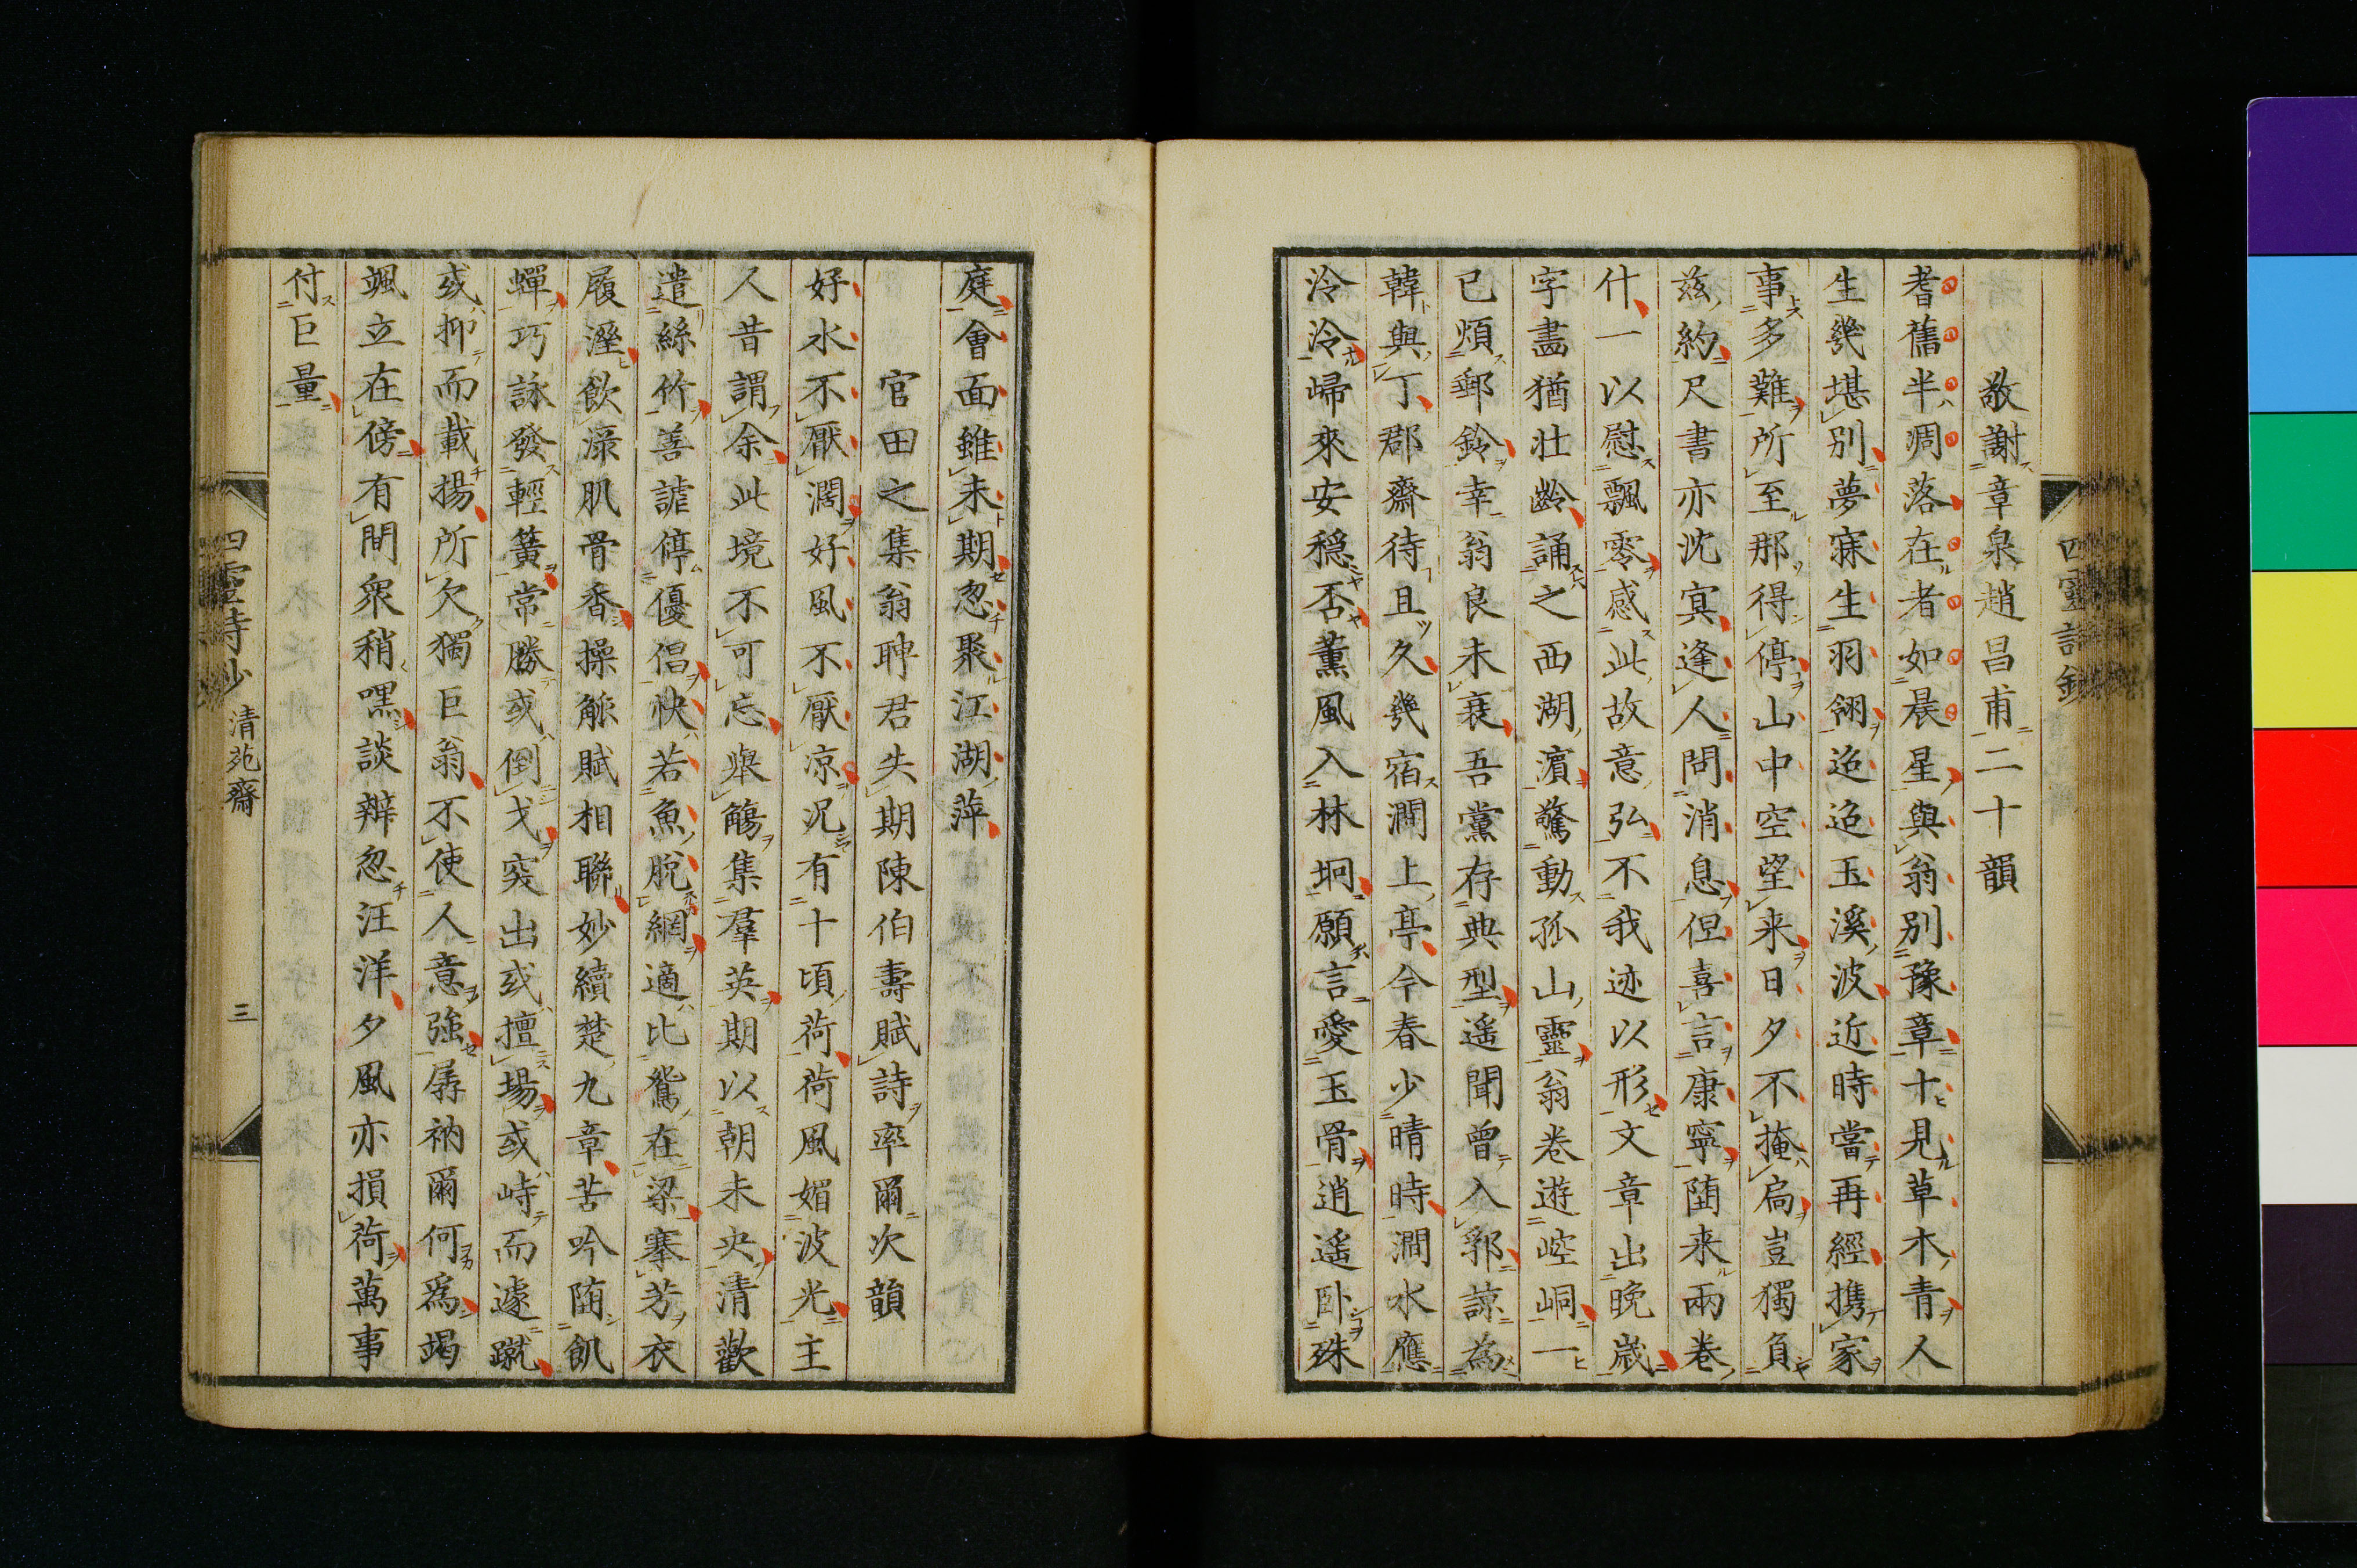 四靈詩鈔
敬謝章泉趙昌甫二十韻
耆舊半凋落在者如晨星與翁别豫章十見草木青人
生幾堪别夢寐生羽翎迢迢玉溪波近時當再經携家
事多難所至那得停山中空望来日夕不掩扃豈獨負
兹約尺書亦沈寘逢人問消息但喜言康寧随来兩巻
什一以慰飄零感此故意弘不我迹以形文章出晩歲
字畫猶壮齡誦之西湖濱驚動孤山靈翁巻遊崆峒一
已煩郵鈴幸翁良未衰吾黨存典型遥聞曾入郭諒為
韓與丁郡齋待且久幾宿澗上亭今春少晴時澗水應
泠泠歸來安穏否薫風入林坰願言愛玉骨逍遥卧殊
庭會面雖未期忽聚江湖萍
官田之集翁聘君失期陳伯壽賦詩率爾次韻
好水不厭濶好風不厭凉况有十頃荷荷風媚波光主
人昔謂余此境不可忘舉觴集羣英期以朝未央清歡
遣絲竹善謔停優倡快若魚脱網適比鴛在梁搴芳衣
履溼飲渌肌骨香操觚賦相聯妙續楚九章苦吟随飢
蟬巧詠發輕簧常勝或倒戈突出或擅場或峙而遽蹴
或抑而載揚所欠獨巨翁不使人意強孱衲爾何爲竭
颯立在傍有間衆稍嘿談辨忽汪洋夕風亦損荷萬事
付巨量
四靈詩鈔 清苑齋 三